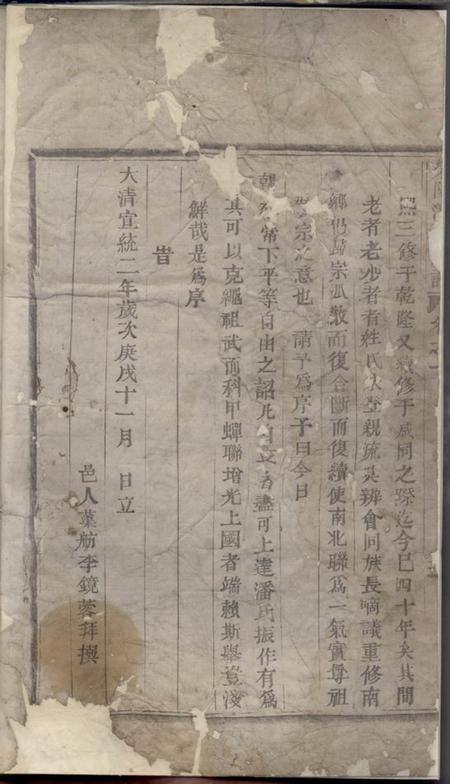 熙三修于乾隆又續修于咸同之際迄今巳四十年矣其間
老者老少者者姓氏次登親疏莫辨會同族長嘀議重修南
鄉仍歸宗派散而復合斷而復續使南北聯爲一氣實尊祖
宗之意也請予爲序予曰今日
朝 常下平等自由之詔凡 盡可上達潘氏振作有爲
其可以克繩祖武而科甲蟬聯增光上國者端賴斯舉豈淺
鮮哉是爲序
旹
大清宣統二年歲次庚戌十一月 日立
邑人葉舫李鏡蓉拜撰